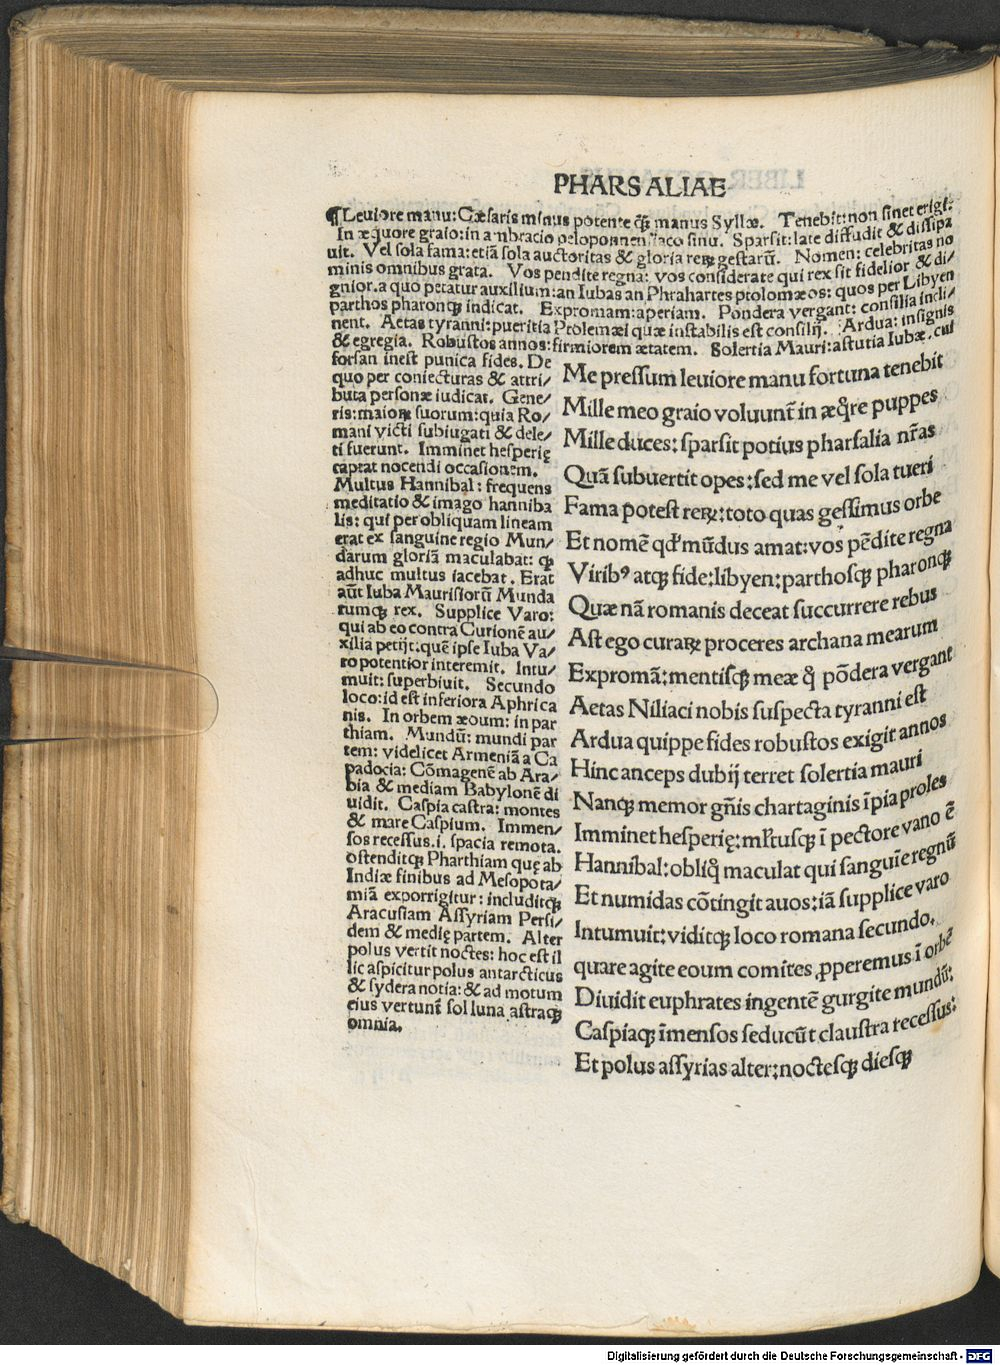 PHARSALIAE
¶Leuiore manu: Cæsaris minus potente ꝙ̃ manus Syllæ. Tenebit: non sinet erigi.
In æquore graio: in ambracio peloponnensiaco sinu. Sparsit: late diffudit & dissipa
uit. Vel sola fama: etiã sola auctoritas & gloria reꝝ gestarũ. Nomen: celebritas no
minis omnibus grata. Vos pendite regna: vos considerate qui rex sit fidelior & di/
gnior. a quo petatur auxilium: an Iubas an Phrahartes ptolomæos: quos per Libyen
parthos pharonqꝫ indicat. Expromam: aperiam. Pondera vergant: consilia incli/
nent. Aetas tyranni: pueritia Ptolemæi quæ instabilis est consilij. Ardua: insignis
& egregia. Robustos annos: firmiorem ætatem. Solertia Mauri: astutia Iubæ. cui
forsan inest punica fides. De
quo per coniecturas & attri/
buta personæ iudicat. Gene/
ris: maioꝝ suorum: quia Ro/
mani victi subiugati & dele/
ti fuerunt. Imminet hesperię
captat nocendi occasionem.
Multus Hannibal: frequens
meditatio & imago hanniba
lis: qui per obliquam lineam
erat ex sanguine regio Mun/
darum gloriã maculabat: ꝙ
adhuc multus iacebat. Erat
aũt Iuba Maurisiorũ Munda
rumqꝫ rex. Supplice Varo:
qui ab eo contra Curionẽ au/
xilia petijt: quẽ ipse Iuba Va/
ro potentior interemit. Intu/
muit: superbiuit. Secundo
loco: id est inferiora Aphrica
nis. In orbem æoum: in par
thiam. Mundũ: mundi par
tem: videlicet Armeniã a Ca
padocia: Cõmagenẽ ab Ara/
bia & mediam Babylonẽ di
uidit. Caspia castra: montes
& mare Caspium. Immen/
sos recessus. i. spacia remota.
ostenditqꝫ Pharthiam quę ab
Indiæ finibus ad Mesopota/
miã exporrigitur: includitqꝫ
Aracusiam Assyriam Persi/
dem & medię partem. Alter
polus vertit noctes: hoc est il
lic aspicitur polus antarcticus
& sydera notia: & ad motum
eius vertunt̃ sol luna astraqꝫ
omnia.
Me pressum leuiore manu fortuna tenebit
Mille meo graio voluunt̃ in æq̃re puppes
Mille duces: sparsit potius pharsalia nr̃as
Quã subuertit opes: sed me vel sola tueri
Fama potest reꝝ: toto quas gessimus orbe
Et nomẽ qđ mũdus amat: vos pẽdite regna
Viribꝰ atqꝫ fide: libyen: parthosqꝫ pharonqꝫ
Quæ nã romanis deceat succurrere rebus
Ast ego curaꝝ proceres archana mearum
Expromã: mentisqꝫ meæ q̊ põdera vergant
Aetas Niliaci nobis suspecta tyranni est
Ardua quippe fides robustos exigit annos
Hinc anceps dubij terret solertia mauri
Nanqꝫ memor gñis chartaginis ĩpia proles
Imminet hesperię: ml̃tusqꝫ ĩ pectore vano ẽ
Hannibal: obliq̊ maculat qui sanguĩe regnũ
Et numidas cõtingit auos: iã supplice varo
Intumuit: viditqꝫ loco romana secundo.
quare agite eoum comites ꝓperemus ĩ orbẽ
Diuidit euphrates ingentẽ gurgite mundũ:
Caspiaqꝫ ĩmensos seducũt claustra recessus:
Et polus assyrias alter: noctesqꝫ diesqꝫ
Digitalisierung gefördert durch die Deutsche Forschungsgemeinschaft - DFG